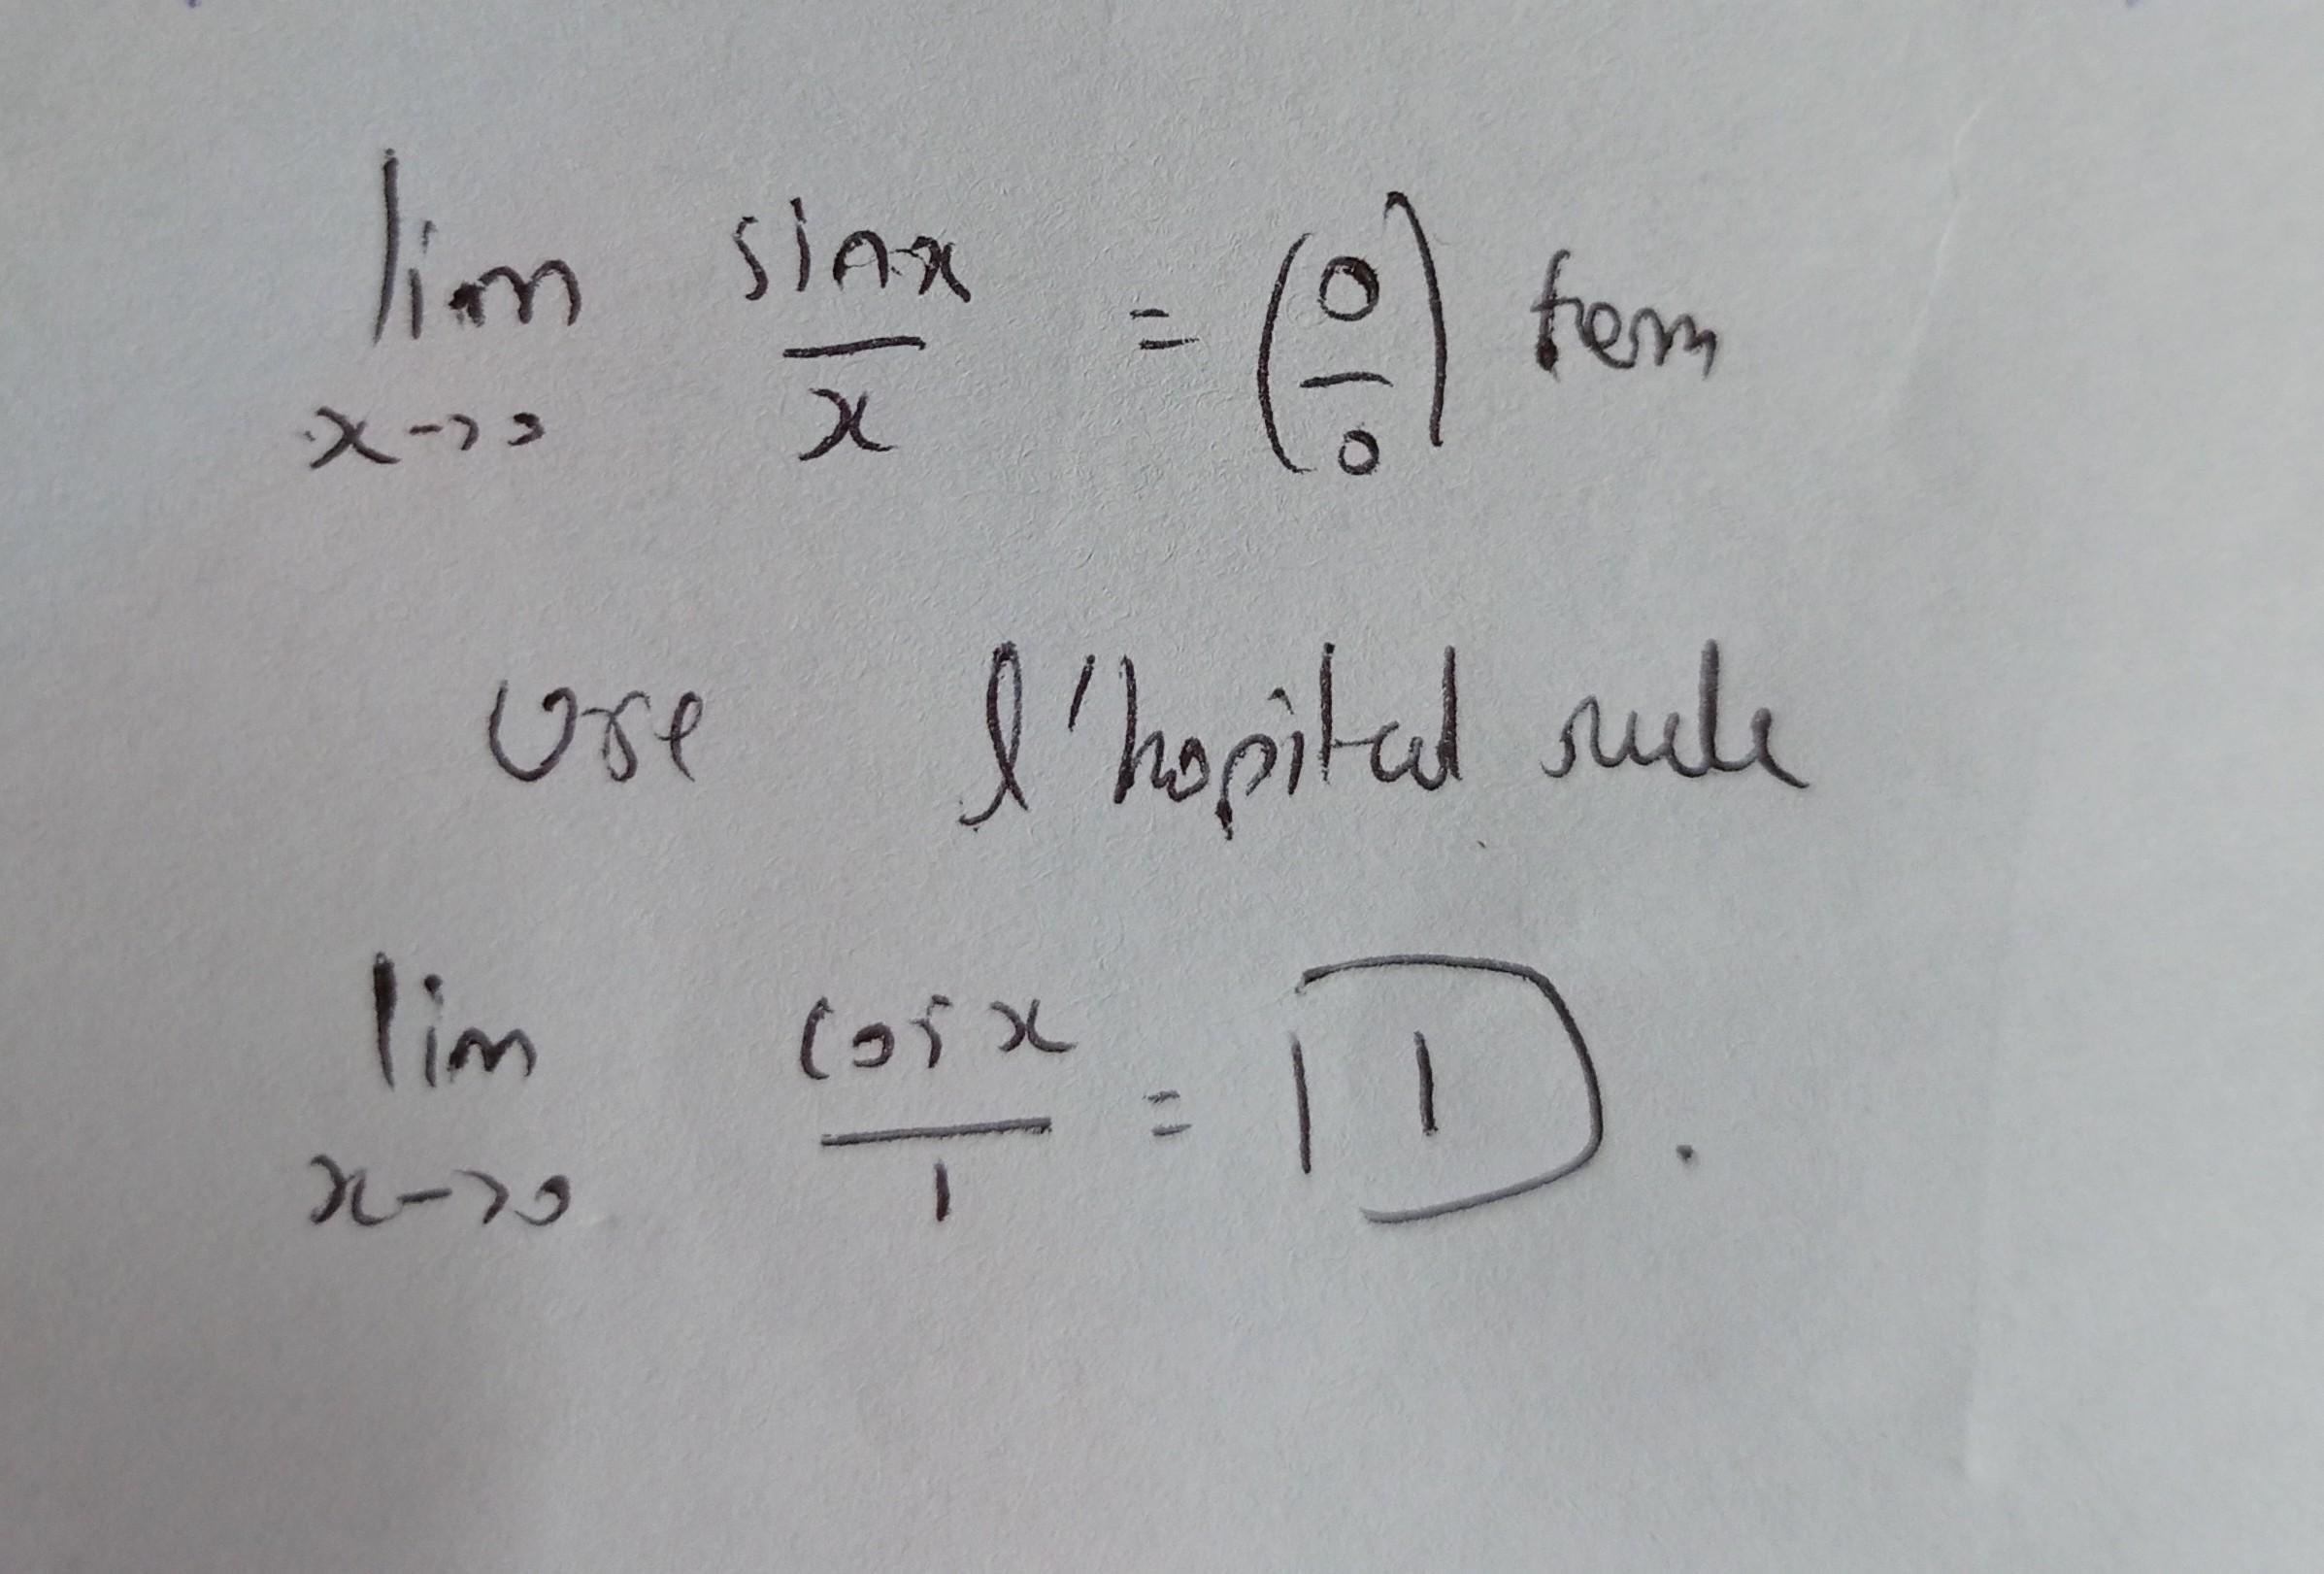 lim sinx/x = (0/0) form
x->0
use l'hopital rule
lim cosx/1 = 1.
x->0